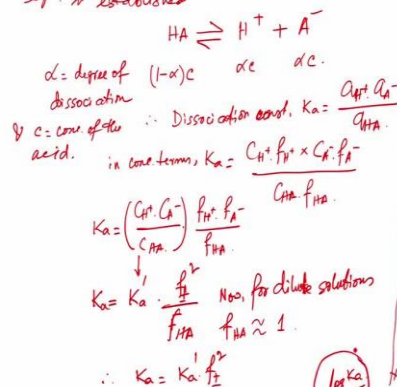 is established
HA ⇌ H⁺ + A⁻
α = degree of dissociation (1-α)c αc αc.
& c = conc. of the acid. ∴ Dissociation const, Ka = a_H⁺. a_A⁻ / a_HA.
in conc. terms, Ka = C_H⁺ f_H⁺ × C_A⁻ f_A⁻ / C_HA. f_HA.
Ka = (C_H⁺. C_A⁻ / C_HA.) f_H⁺. f_A⁻ / f_HA.
↓
Ka = Ka' . f±² / f_HA Now, for dilute solutions f_HA ≈ 1.
∴ Ka = Ka' f±²
log Ka